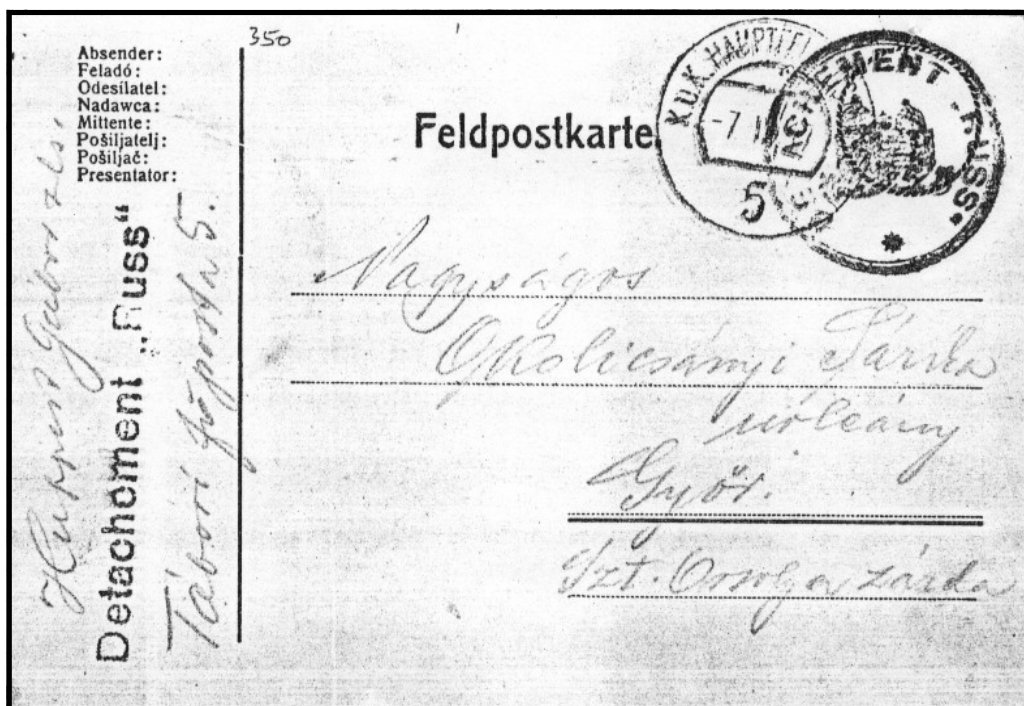 350
Absender:
Feladó:
Odesílatel:
Nadawca:
Mittente:
Pošiljatelj:
Pošiljač:
Presentator:
Detachement „Russ“
Tábori főposta 5.
Feldpostkarte
K.U.K. HAUPTFEL
-7.
5
ACHEMENT „RUSS“
Nagyságos
Okolicsányi Sárika
úrleány
Győr.
Szt. Orsolya zárda